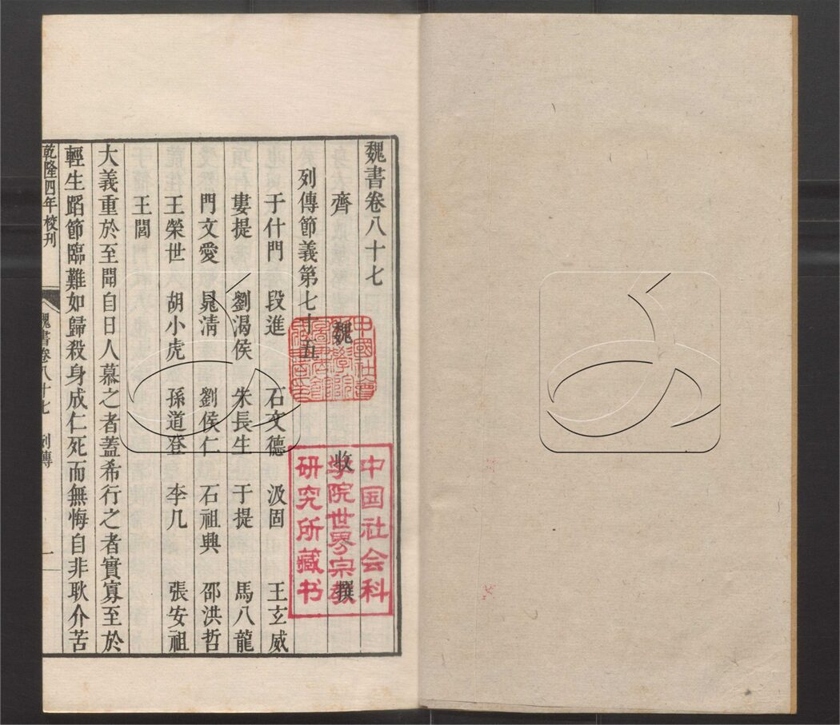 魏書卷八十七
齊 魏 收 撰
列傳節義第七十五
于什門 段進 石文德 汲固 王玄威
婁提 劉渴侯 朱長生 于提 馬八龍
門文愛 晁清 劉侯仁 石祖興 邵洪哲
王榮世 胡小虎 孫道登 李几 張安祖
王閭
大義重於至聞自日人慕之者蓋希行之者實寡至於
輕生蹈節臨難如歸殺身成仁死而無悔自非耿介苦
乾隆四年校刊
魏書卷八十七 列傳 一
中国社会科
学院世界宗教
研究所藏书